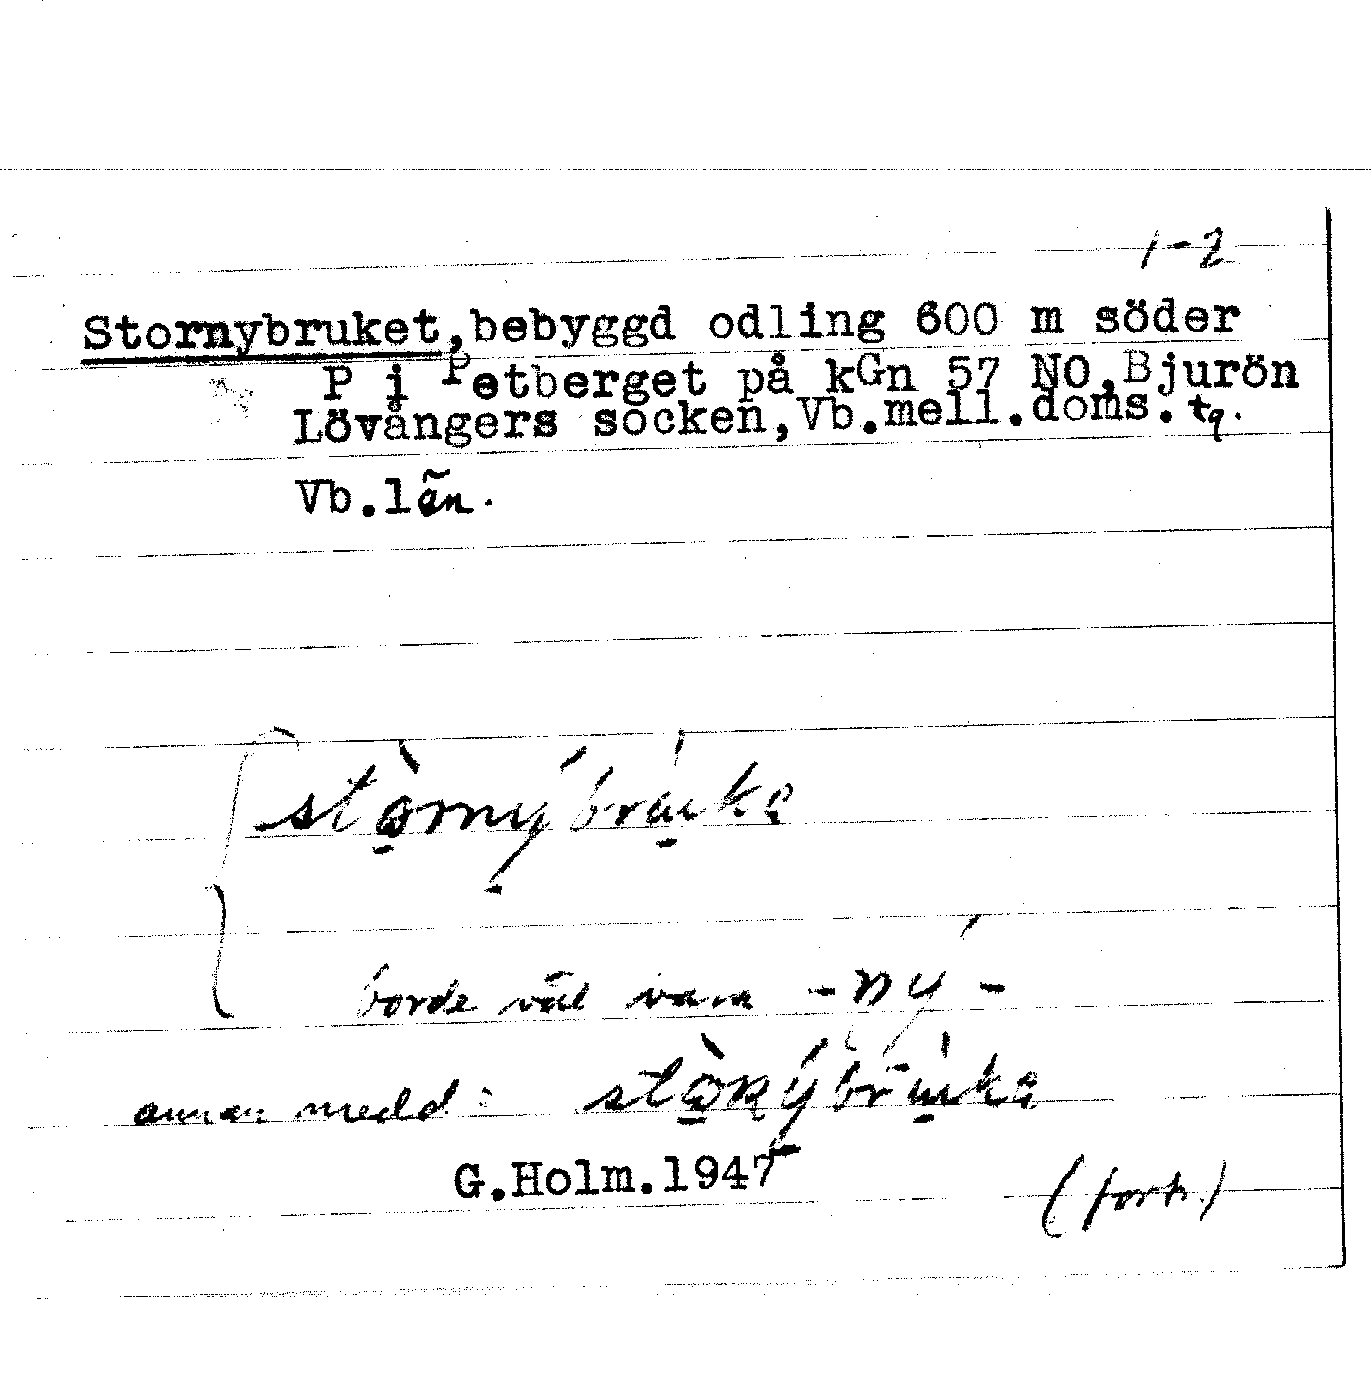 1-2
Stornybruket, bebyggd odling 600 m söder
P i Petberget på kGn 57 NO, Bjurön
Lövångers socken, Vb. mell. doms. tg.
Vb. län.
stòrnýbruka
borde väl vara -ný-
annan medd:
G. Holm. 1947
(forts.)